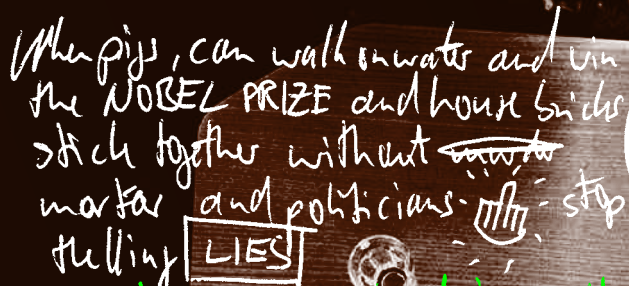 When pigs, can walk on water and win
the NOBEL PRIZE and house bricks
stick together without
mortar and politicians stop
telling LIES